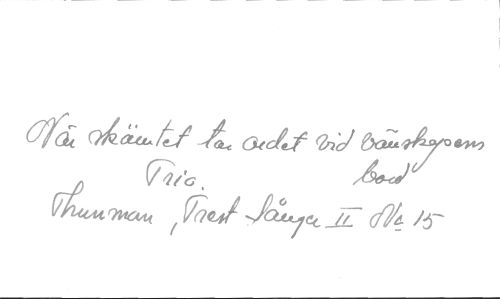 När skämtet tar ordet vid vänskapens
Trio. bord
Thunman, Trest Sånger II No 15